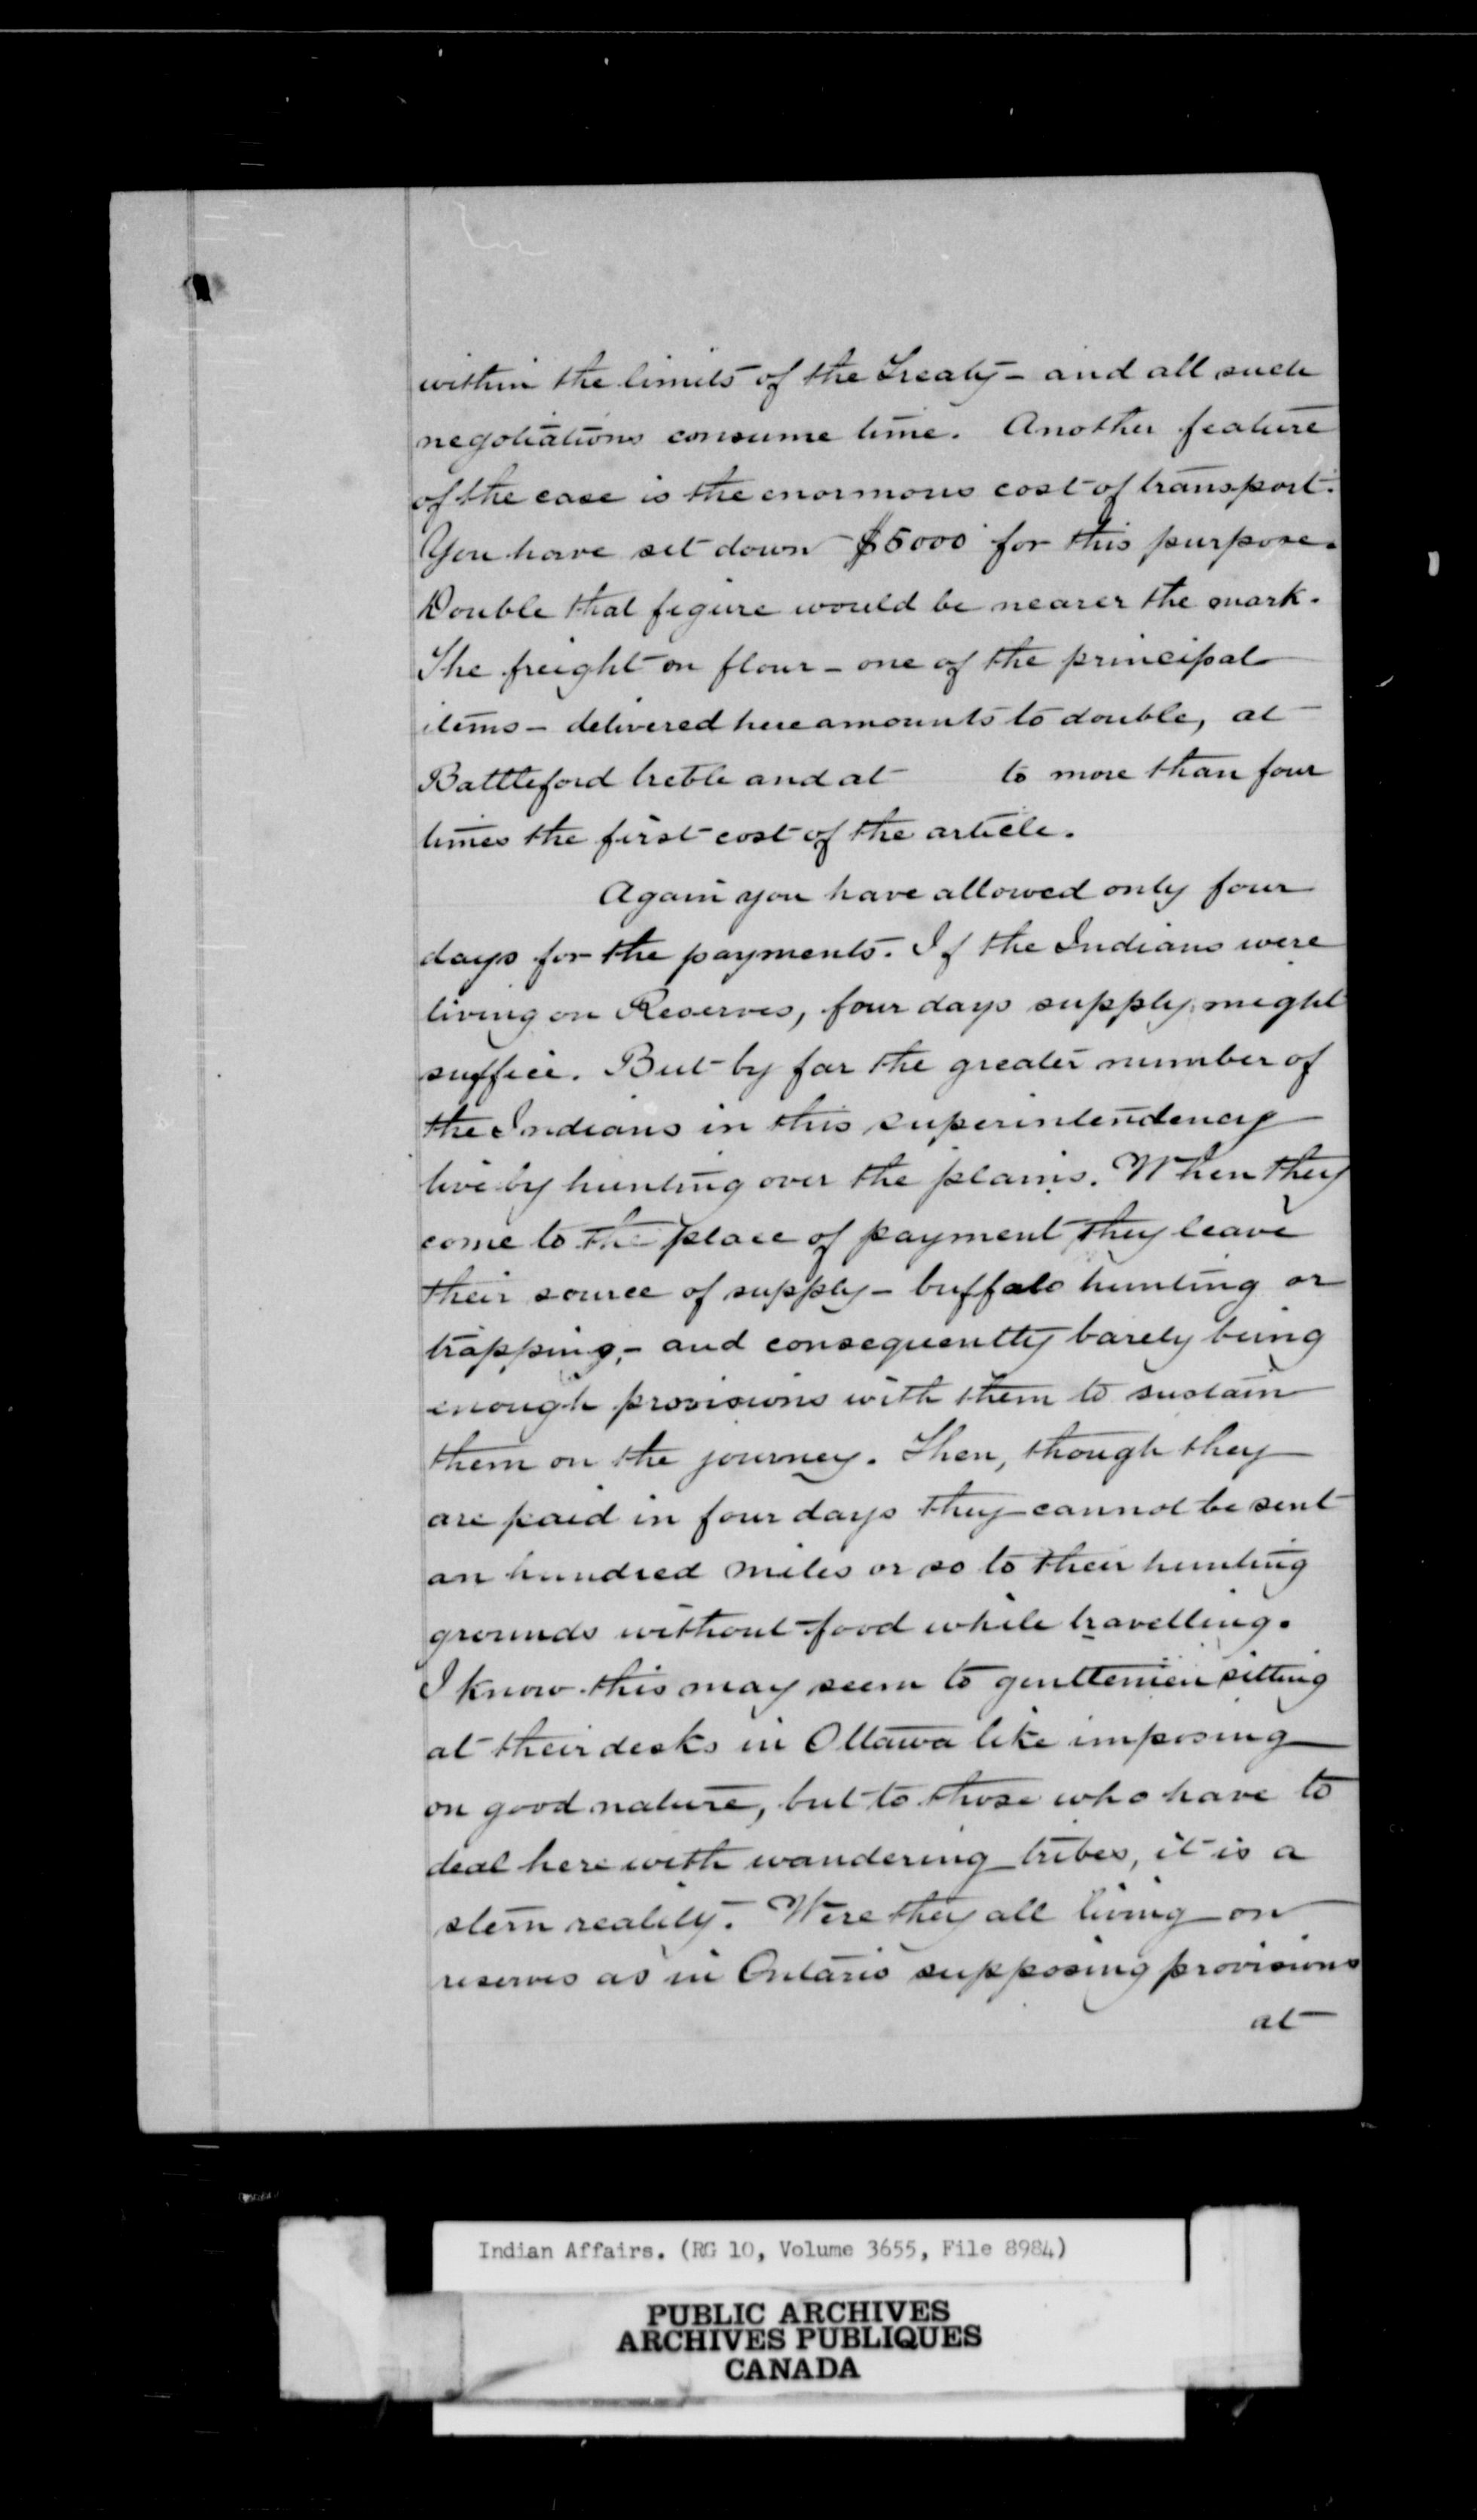 within the limits of the Treaty - and all such
negotiations consume time. Another feature
of the case is the enormous cost of transport.
You have set down $5000 for this purpose.
Double that figure would be nearer the mark.
The freight on flour - one of the principal
items - delivered here amounts to double, at
Battleford treble and at to more than four
times the first cost of the article.
Again you have allowed only four
days for the payments. If the Indians were
living on Reserves, four days supply might
suffice. But by far the greater number of
the Indians in this superintendency
live by hunting over the plains. When they
come to the place of payment they leave
their source of supply - buffalo hunting or
trapping, - and consequently barely being
enough provisions with them to sustain
them on the journey. Then, though they
are paid in four days they cannot be sent
an hundred miles or so to their hunting
grounds without food while travelling.
I know this may seem to gentlemen sitting
at their desks in Ottawa like imposing
on good nature, but to those who have to
deal here with wandering tribes, it is a
stern reality. Were they all living on
reserves as in Ontario supposing provisions
at
Indian Affairs. (RG 10, Volume 3655, File 8984)
PUBLIC ARCHIVES
ARCHIVES PUBLIQUES
CANADA